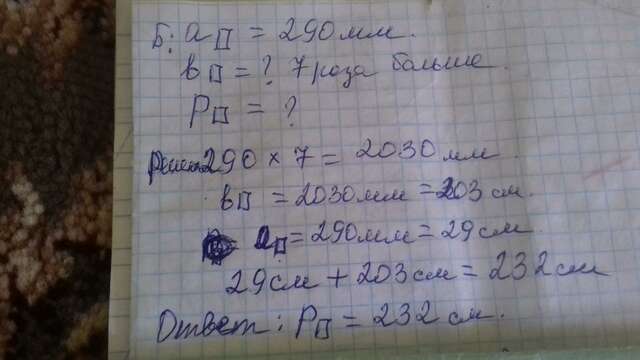 Б: a▯ = 290 мм.
в▯ = ? 7 роза больше.
P▯ = ?
Решен 290 × 7 = 2030 мм.
в▯ = 2030 мм = 203 см.
a▯ = 290 мм = 29 см.
29 см + 203 см = 232 см
Ответ: P▯ = 232 см.